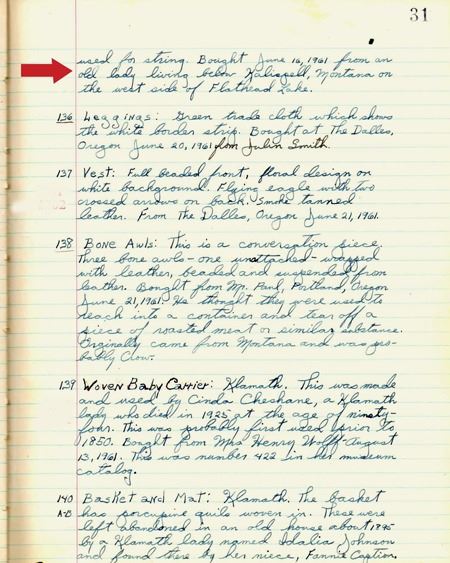 31
used for string. Bought June 16, 1961 from an
old lady living below Kalispell, Montana on
the west side of Flathead Lake.
136 Leggings: Green trade cloth which shows
the white border strip. Bought at The Dalles,
Oregon June 20, 1961 from Julia Smith.
137 Vest: Full beaded front, floral design on
white background. Flying eagle with two
crossed arrows on back. Smoke tanned
leather. From The Dalles, Oregon June 21, 1961.
138 Bone Awls: This is a conversation piece.
Three bone awls - one unattached - wrapped
with leather, beaded and suspended from
leather. Bought from Mr. Paul, Portland, Oregon
June 21, 1961. He thought they were used to
reach into a container and tear off a
piece of roasted meat or similar substance.
Orginally came from Montana and was pro-
bably Crow.
139 Woven Baby Carrier: Klamath. This was made
and used by Cinda Cheshane, a Klamath
lady who died in 1925 at the age of ninety-
four. This was probably first used prior to
1850. Bought from Mrs Henry Wolff - August
13, 1961. This was number 422 in her museum
catalog.
140 Basket and Mat: Klamath. The basket
A-B has porcupine quils woven in. These were
left abandoned in an old house about 1895
by a Klamath lady named Idalia Johnson
and found there by her niece, Fannie